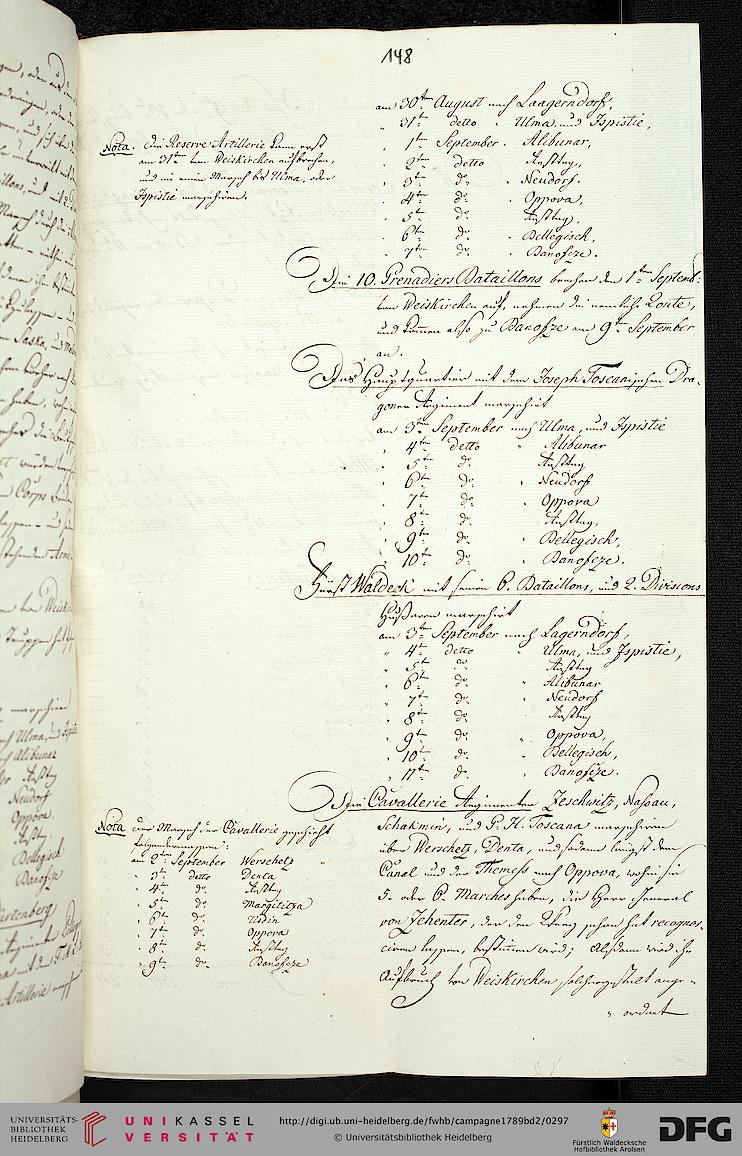 148
am 30ten August nach Laagerndorf,
" 31ten detto " Ulma, und Ispistie,
" 1ten September " Alibunar,
" 2ten detto " Rasttag,
" 3ten do " Neudorf.
" 4ten do " Oppova,
" 5ten do " Rasttag,
" 6ten do " Bellegisch,
" 7ten do " Banofcze.
Nota. Die Reserve Artillerie kann erst
am 31ten von Weiskirchen aufbrechen,
und in einem Marsch bis Ulma, oder
Ispistie marschiren.
Die 10. Grenadiers Bataillons brechen den 1ten Septemb:
von Weiskirchen auf, nehmen die nemliche Route,
und kommen also zu Banofze am 9ten September
an.
Das Hauptquartier mit dem Joseph Toscanischen Dra-
goner Regiment marschirt
am 3ten September nach Ulma, und Ispistie
" 4ten detto " Alibunar
" 5ten do Rasttag
" 6ten do " Neudorf
" 7ten do " Oppova
" 8ten do Rasttag,
" 9ten do " Bellegisch,
" 10ten do " Banofcze.
Fürst Waldeck mit seinen 6. Bataillons, und 2. Divisions
Hußaren marschirt
am 3ten September nach Lagerndorf,
" 4ten detto " Ulma, und Ispistie,
" 5ten do Rasttag
" 6ten do " Alibunar
" 7ten do " Neudorf
" 8ten do " Rasttag
" 9ten do " Oppova,
" 10ten do " Bellegisch,
" 11ten do " Banofcze.
Die Cavallerie Regimenter Zeschwitz, Naßau,
Schakmin, und P: H: Toscana marschiren
über Werschetz, Denta, und sodann längst dem
Canal und der Themess nach Oppova, wohin sie
5. oder 6. Marches haben, die Herr General
von Jehenter, der den Weeg schon hat recognos-
ciren lassen, bestimmen wird; Alsdann wird ihr
Aufbruch von Weiskirchen, solchergestalt ange-
" ordnet
Nota der Marsch der Cavallerie geschieht
folgendermassen:
am 2ten September Werschetz
" 3ten detto Denta
" 4ten do Rasttag
" 5ten do Margititza
" 6ten do Usdin
" 7ten do Oppova
" 8ten do Rasttag
" 9ten do Banofcze
UNIVERSITÄTS-
BIBLIOTHEK
HEIDELBERG
UNIKASSEL
VERSITÄT
http://digi.ub.uni-heidelberg.de/fwhb/campagne1789bd2/0297
© Universitätsbibliothek Heidelberg
Fürstlich Waldecksche
Hofbibliothek Arolsen
DFG